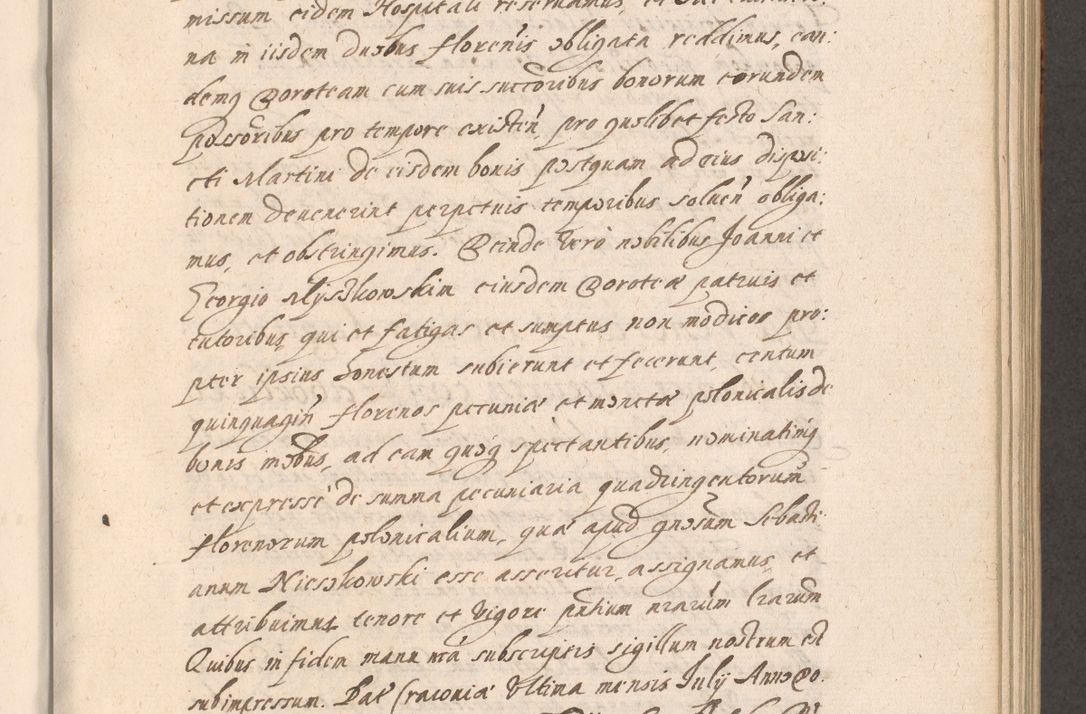 missum eidem Hospitali reservamus, et
na in iisdem duobus florenis obligata reddimus, ean:
demq Doroteam cum suis succoribus bonorum eorundem
possoribus pro tempore existen, pro quolibet festo San:
cti Martini de eisdem bonis postquam ad eius disposi:
tionem devenerint perpetuis temporibus solven obliga:
mus, et obstringimus. Deinde vero nobilibus Joanni et
Georgio Myszkowskim eiusdem Doroteæ patruis et
tutoribus qui et fatigas et sumptus non modicos pro:
pter ipsius honestum subierunt et fecerunt, centum
quinquagin florenos pecuniæ et monetæ polonicalis de
bonis mobus, ad eam quoq spectantibus, nominatimq
et expresse de summa pecuniaria quadringentorum
florenorum polonicalium, quæ apud gnosum Sebasti
anum Nieszkowski esse asseritur, assignamus, et
attribuimus tenore et vigore pntium nrarum lrarum
Quibus in fidem manu nra subscriptis sigillum nostrum est
subimpressum. Dat Cracoviæ Ultima mensis July Anno Do.